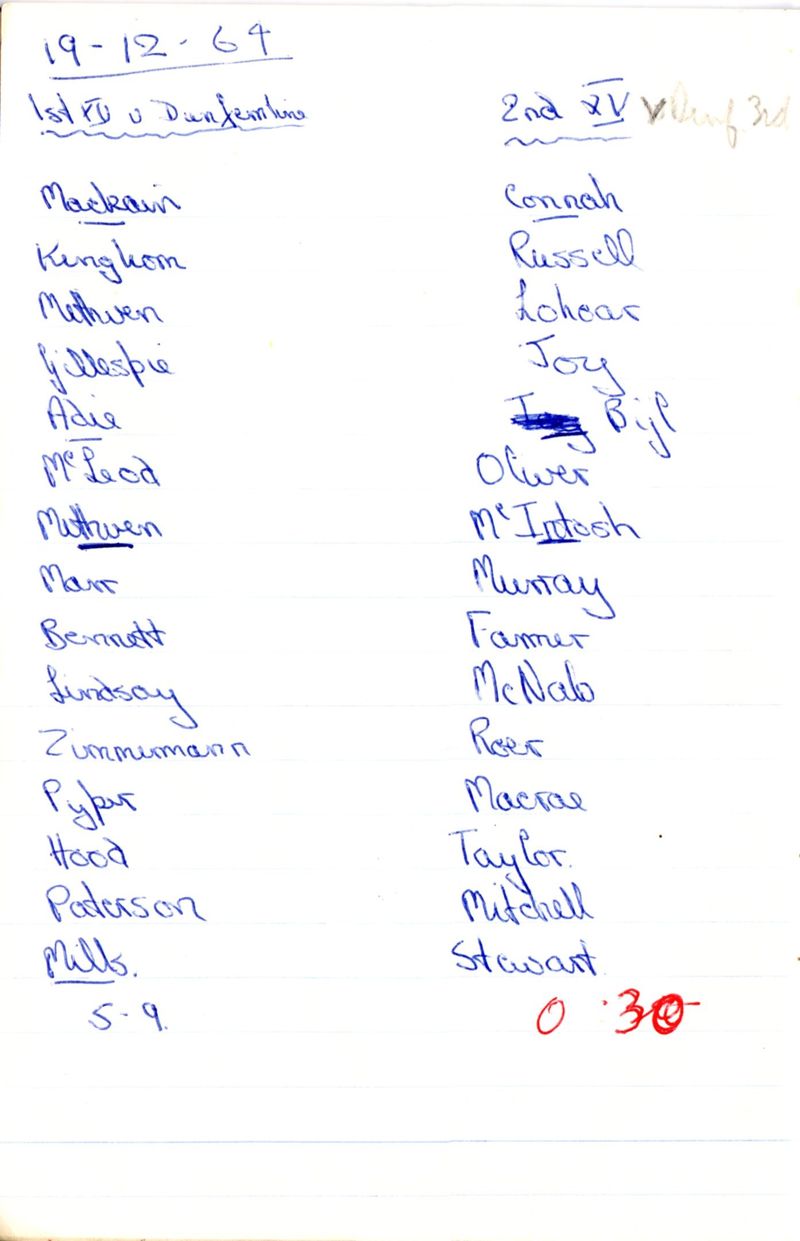 19-12-64
1st XV v Dunfermline
2nd XV v Dunf 3rd
Mackain
Kinghorn
Methven
Gillespie
Adie
McLeod
Methven
Marr
Bennett
Lindsay
Zimmermann
Pyper
Hood
Paterson
Mills.
5-9.
Connah
Russell
Lohoar
Joy
Bijl
Oliver
McIntosh
Murray
Farmer
McNab
Roer
Macrae
Taylor.
Mitchell
Stewart
0 30